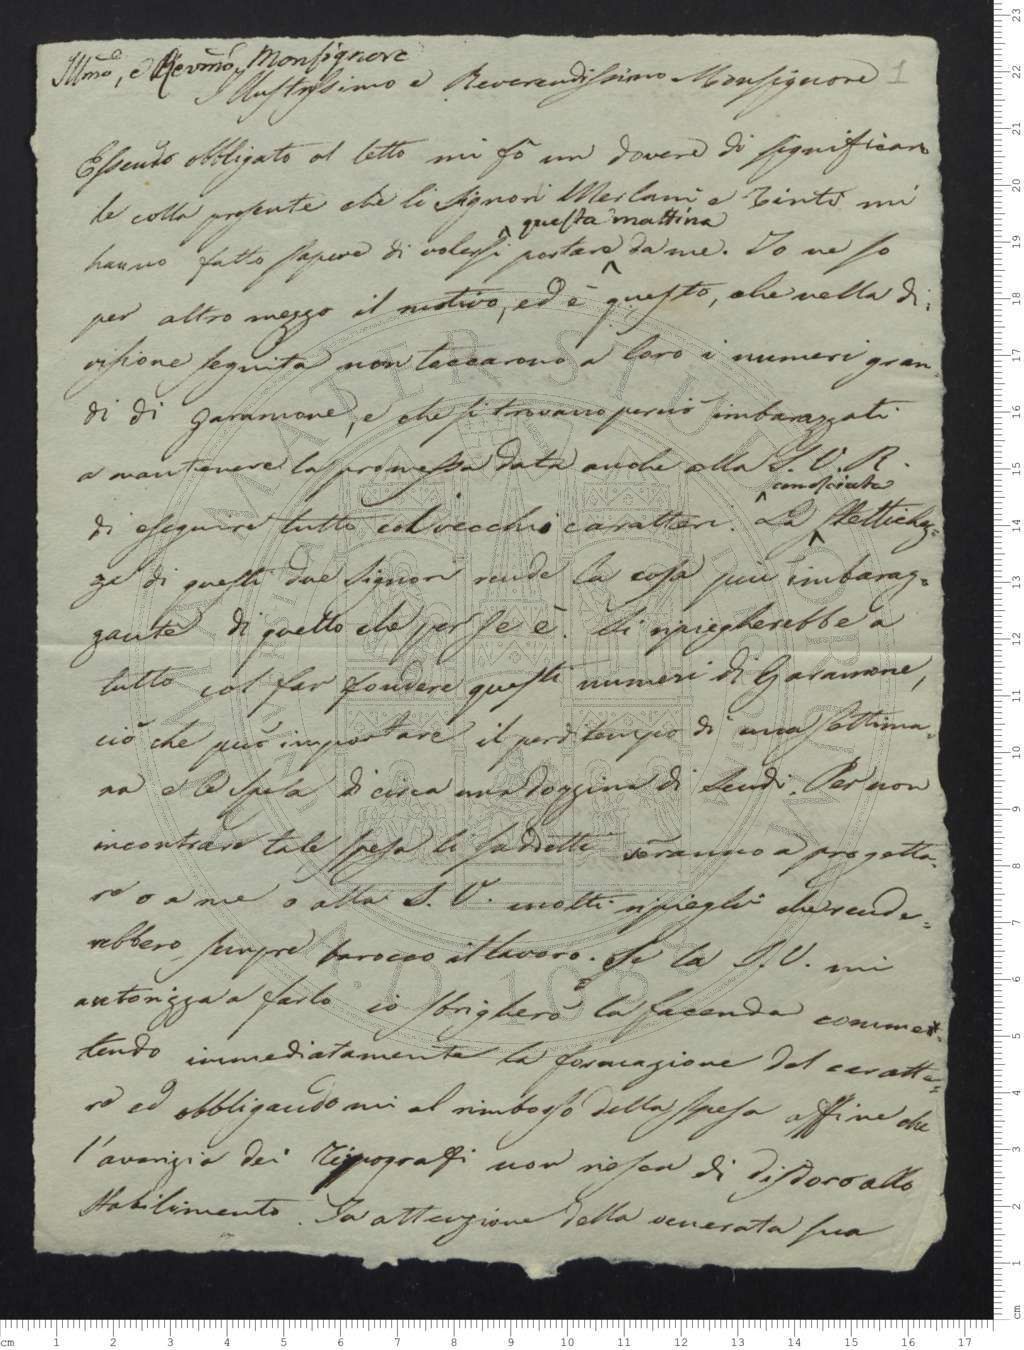 Illmo, e Revmo Monsignore
Illustrissimo e Reverendissimo Monsignore 1
Essendo obbligato al letto mi fò un dovere di significar
le colla presente che li Signori Merlani e Tinti mi
questa mattina
hanno fatto sapere di volersi portare da me. Io ne so
per altro mezzo il motivo, ed è questo, che nella di-
visione seguita non toccarono a loro i numeri gran-
di di Garamone, e che si trovano perciò imbarazzati
a mantenere la promessa data anche alla S. V. R.
conosciuta
di eseguire tutto col vecchio carattere. La stettichez-
ze di questi due Signori rende la cosa più imbaraz-
zante di quello che per se è. Si ripiegherebbe a
tutto col far fondere questi numeri di Garamone,
ciò che può importare il perditempo di una settima-
na e la spesa di circa una dozzina di Scudi. Per non
incontrare tale spesa li saddetti saranno a progetta-
re o a me o alla S. V. molti ripieghi che rende-
rebbero sempre barocco il lavoro. Se la S. V. mi
autorizza a farlo io sbrigherò la facenda commet-
tendo immediatamente la formazione del caratte-
re ed obbligandomi al rimborso della spesa affine che
l'avarizia dei Tipografi non riesca di disdoro allo
Stabilimento. In attenzione della venerata sua